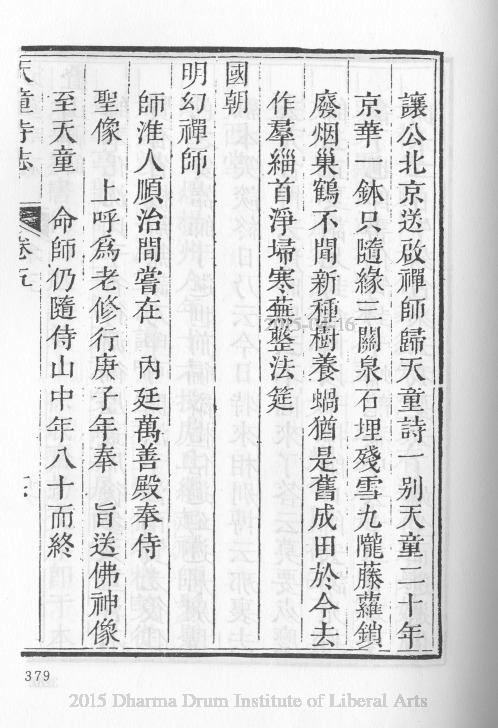 讓公北京送啟禪師歸天童詩一别天童二十年
京華一鉢只隨緣三關泉石埋殘雪九隴藤蘿鎖
廢烟巢鶴不聞新種樹養蝸猶是舊成田於今去
作羣緇首淨埽寒蕪整法筵
國朝
明幻禪師
師淮人順治間嘗在 內廷萬善殿奉侍
聖像 上呼為老修行庚子年奉 旨送佛神像
至天童 命師仍隨侍山中年八十而終
天童寺志 卷五
379
2015 Dharma Drum Institute of Liberal Arts